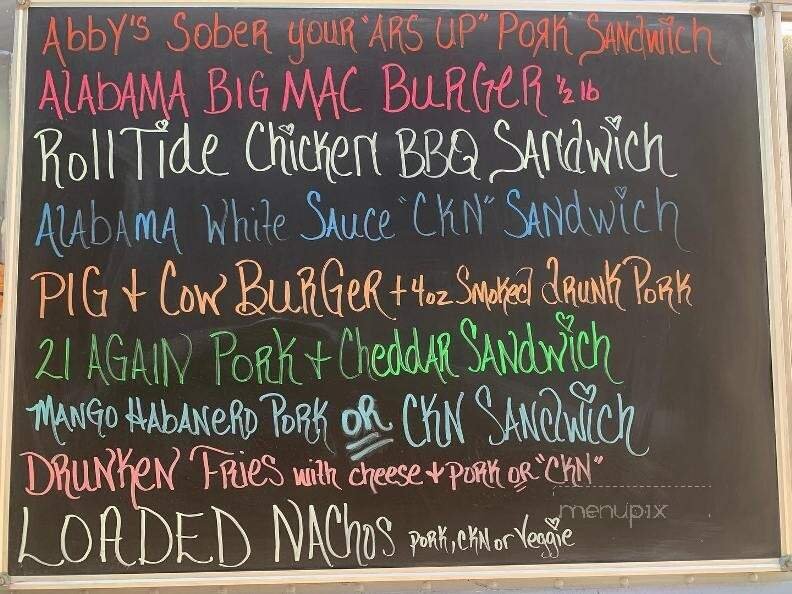 Abby's Sober your "ARS UP" Pork Sandwich
Alabama Big Mac Burger 1/2 lb
Roll Tide Chicken BBQ Sandwich
Alabama White Sauce "CKN" Sandwich
PIG + Cow Burger + 4oz Smoked drunk Pork
21 AGAIN Pork + Cheddar Sandwich
Mango Habanero Pork OR CKN Sandwich
Drunken Fries with cheese + pork or "CKN"
LOADED NAChos pork, CKN or Veggie
menupix